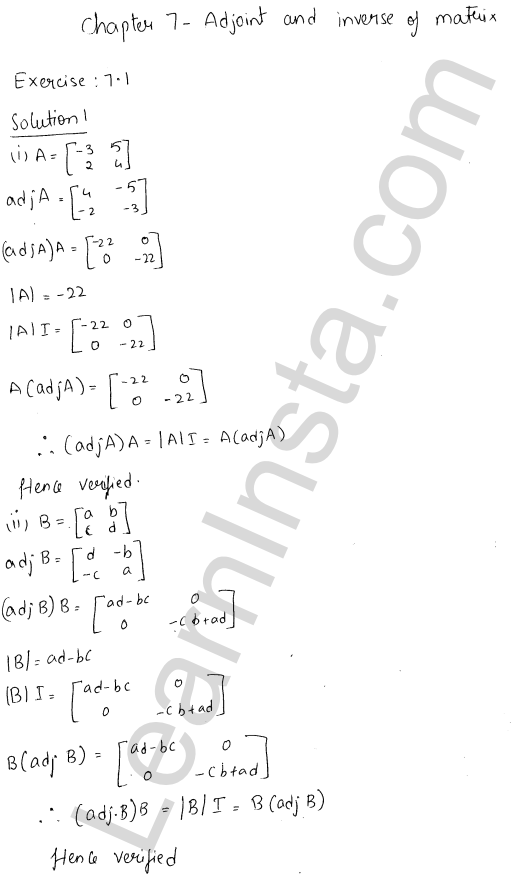 Chapter 7- Adjoint and inverse of matrix
Exercise : 7.1
Solution 1
(i) A = [-3 5
2 4]
adj A = [4 -5
-2 -3]
(adjA)A = [-22 0
0 -22]
|A| = -22
|A| I = [-22 0
0 -22]
A(adjA) = [-22 0
0 -22]
∴ (adjA) A = |A| I = A(adjA)
Hence verified.
(ii) B = [a b
c d]
adj B = [d -b
-c a]
(adj B) B = [ad-bc 0
0 -cb+ad]
|B| = ad-bc
|B| I = [ad-bc 0
0 -cb+ad]
B(adj B) = [ad-bc 0
0 -cb+ad]
∴ (adj.B)B = |B| I = B(adj B)
Hence verified
LearnInsta.com